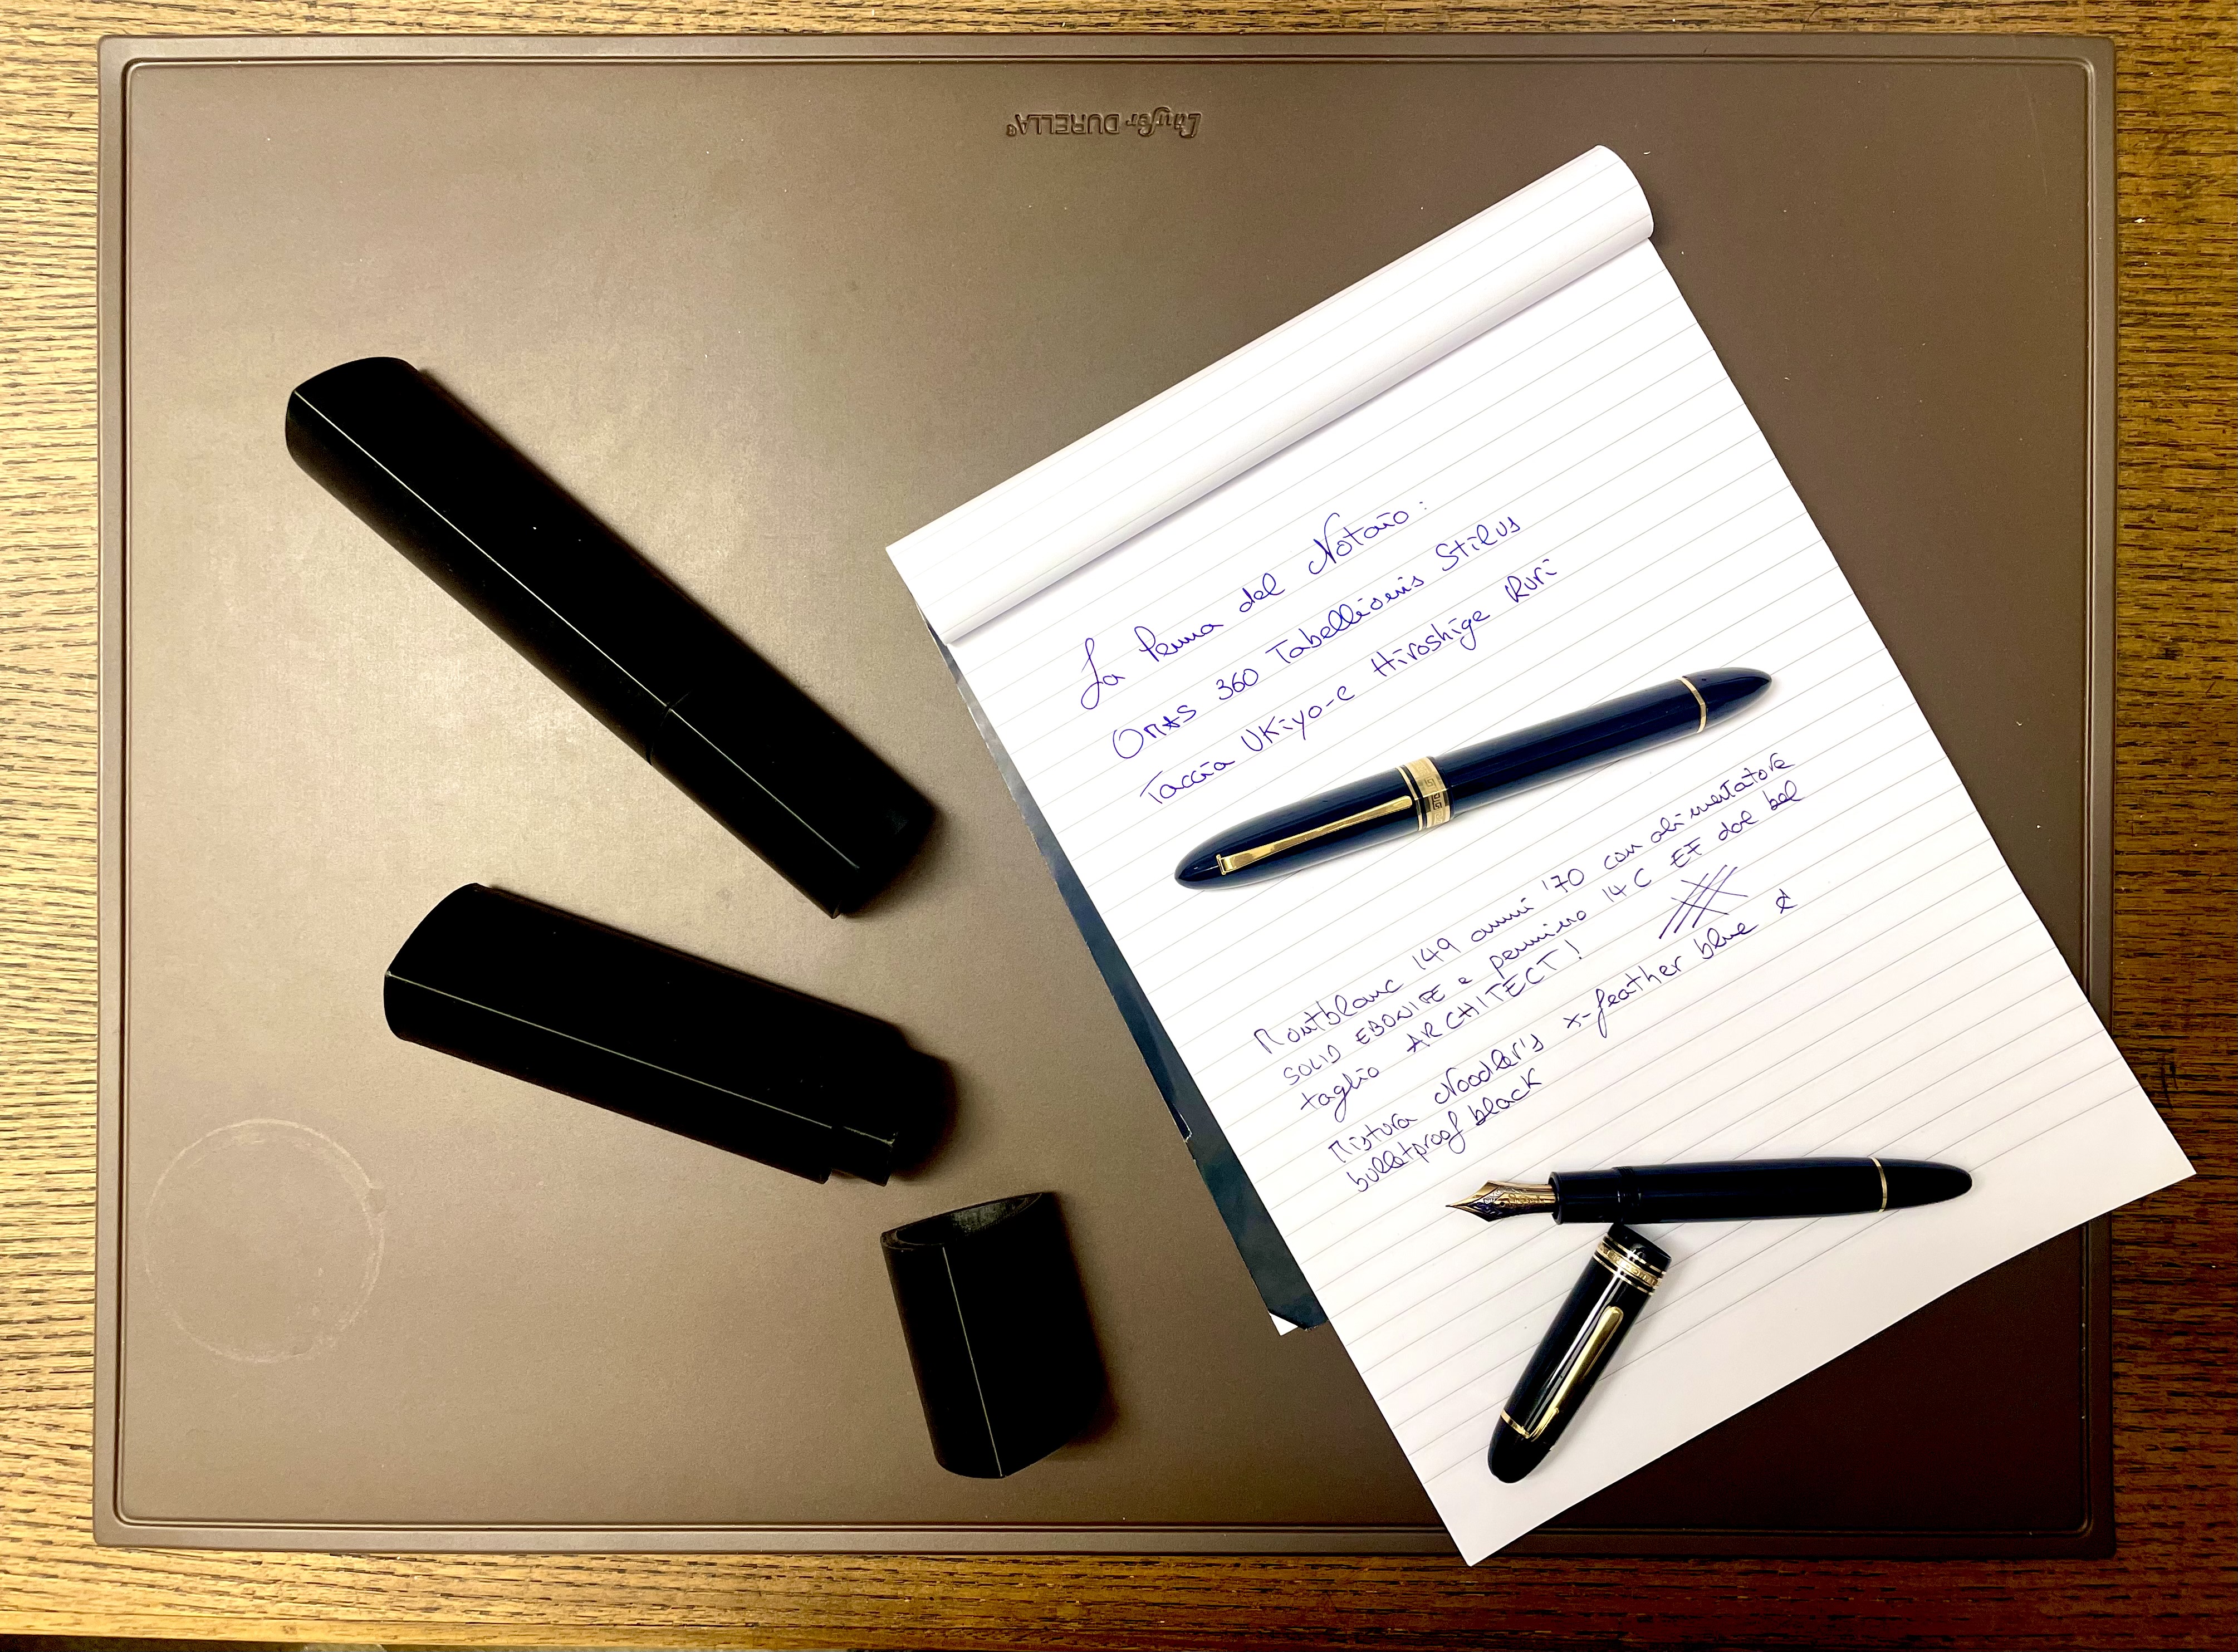 Läufer DURELLA®
La Penna del Notaio:
OMAS 360 Tabellionis Stilus
Taccia Ukiyo-e Hiroshige Ruri
Montblanc 149 anni '70 con alimentatore
SOLID EBONITE e pennino 14 C EF dal bel
taglio ARCHITECT!
Mistura Noodler's x-feather blue &
bulletproof black